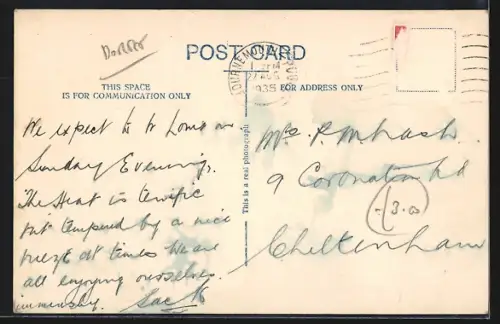 Dorset
POST CARD
BOURNEMOUTH
1935
THIS SPACE
IS FOR COMMUNICATION ONLY
FOR ADDRESS ONLY
We expect to be home on
Sunday Evening.
The Heat is terrific
but tempered by a nice
breeze at times We are
all enjoying ourselves
immensely. Jack
This is a real photograph
Mrs P.
9 Coronation Rd
-13.00
Cheltenham